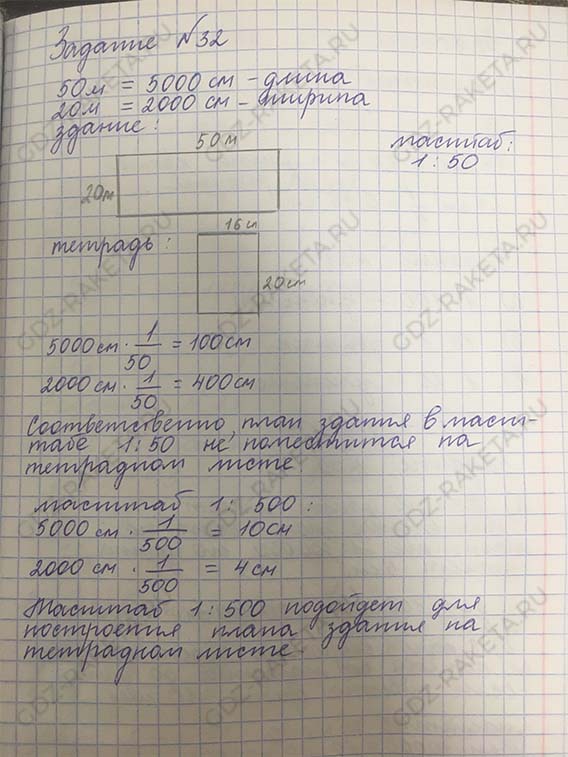 Задание №32
50м = 5000 см - длина
20м = 2000 см - ширина
здание:
масштаб:
1 : 50
50м
20м
тетрадь:
16см
20см
5000см · 1/50 = 100см
2000см · 1/50 = 400см
Соответственно, план здания в масш-
табе 1:50 не поместится на
тетрадном листе.
масштаб 1 : 500 :
5000 см · 1/500 = 10см
2000 см · 1/500 = 4см
Масштаб 1:500 подойдет для
построения плана здания на
тетрадном листе.
GDZ-RAKETA.RU